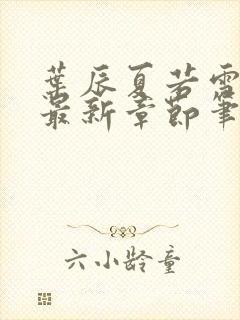 葉辰夏若雪
最新章節筆
六小齡童